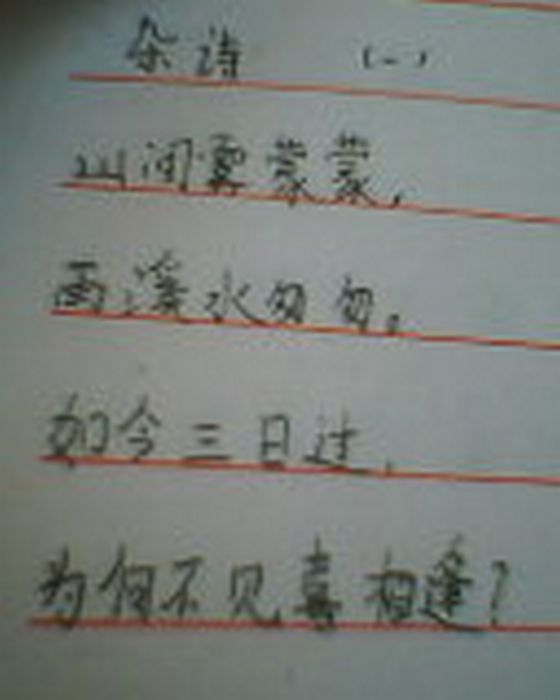 杂诗 (一)
山间雾蒙蒙,
两溪水匆匆。
如今三日过,
为何不见喜相逢?